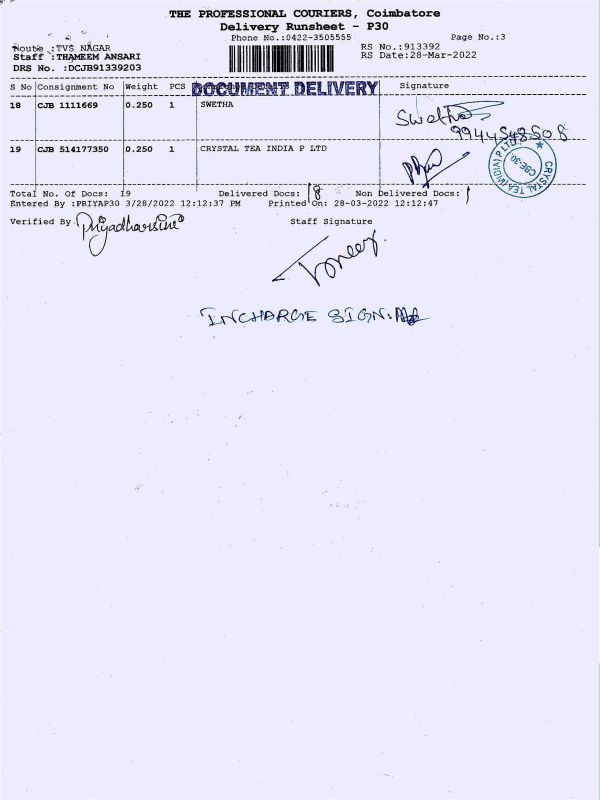 THE PROFESSIONAL COURIERS, Coimbatore
Delivery Runsheet - P30
Phone No.:0422-3505555
Page No.:3
Route :TVS NAGAR
RS No.:913392
Staff :THAMEEM ANSARI
RS Date:28-Mar-2022
DRS No. :DCJB91339203
S No Consignment No Weight PCS DOCUMENT DELIVERY Signature
18 CJB 1111669 0.250 1 SWETHA
Swetha
9944548508
19 CJB 514177350 0.250 1 CRYSTAL TEA INDIA P LTD
CRYSTAL TEA (INDIA) P LTD. CBE-30
Total No. Of Docs: 19 Delivered Docs: 18 Non Delivered Docs: 1
Entered By :PRIYAP30 3/28/2022 12:12:37 PM Printed On: 28-03-2022 12:12:47
Verified By Priyadharsini Staff Signature
INCHARGE SIGN: